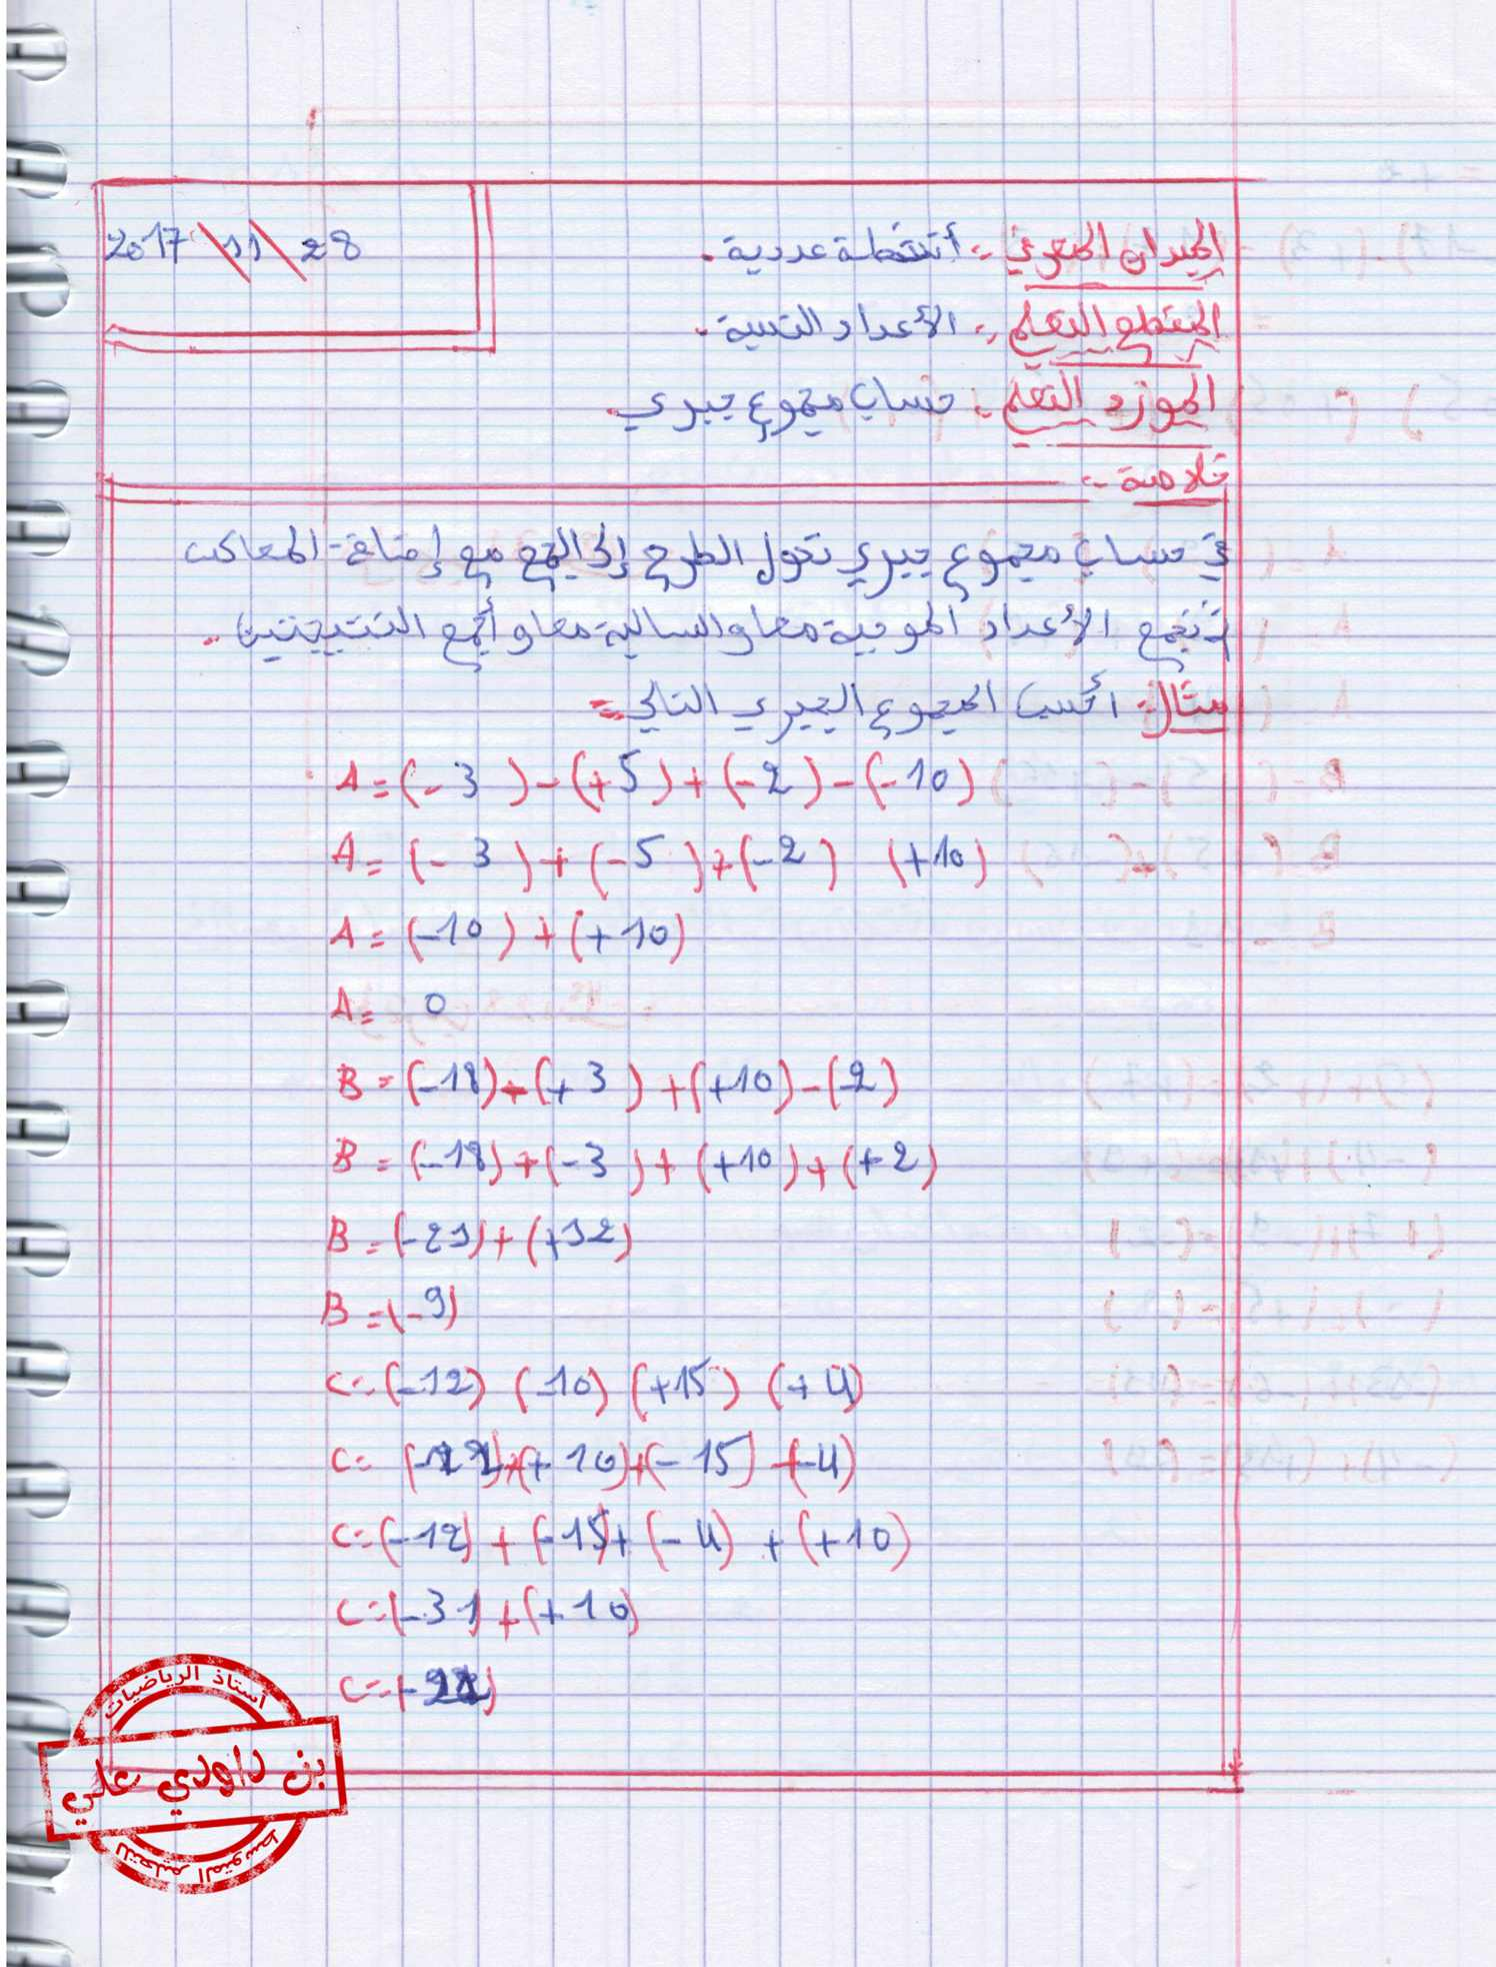 الميدان المعرفي :- أنشطة عددية.
2017 \ 11 \ 28
المقطع التعلمي :- الأعداد النسبية.
المورد التعلمي :- حساب مجموع جبري.
خلاصة :-
في حساب مجموع جبري نحول الطرح إلى الجمع مع إضافة المعاكس
ثم نجمع الأعداد الموجبة معا والسالبة معا و أجمع النتيجتين .
مثال: أحسب المجموع الجبري التالي =
A = (- 3 ) - (+5) + (-2) - (-10)
A = (- 3 ) + (-5 ) + (-2 ) (+10)
A = (-10 ) + (+10)
A = 0
B = (-18) - (+3 ) + (+10) - (-2)
B = (-18) + (-3 ) + (+10) + (+2)
B = (-21) + (+12)
B = (-9)
C = (-12) (-10) (+15) (+4)
C = (-12) + (+10) + (-15) + (-4)
C = (-12) + (-15) + (-4) + (+10)
C = (-31) + (+10)
C = (-21)
أستاذ الرياضيات
بن داودي علي
للتعليم المتوسط